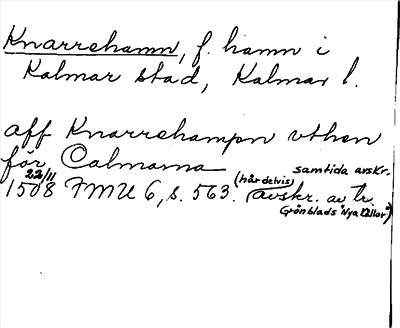 Knarrehamn, f. hamn i
Kalmar stad, Kalmar l.
aff Knarrehampn vthen
för Calmarna
samtida avskr.
1508 22/11 FMU 6, s. 563. (här delvis) avskr. av tr.
Grönblads "Nya Källor")